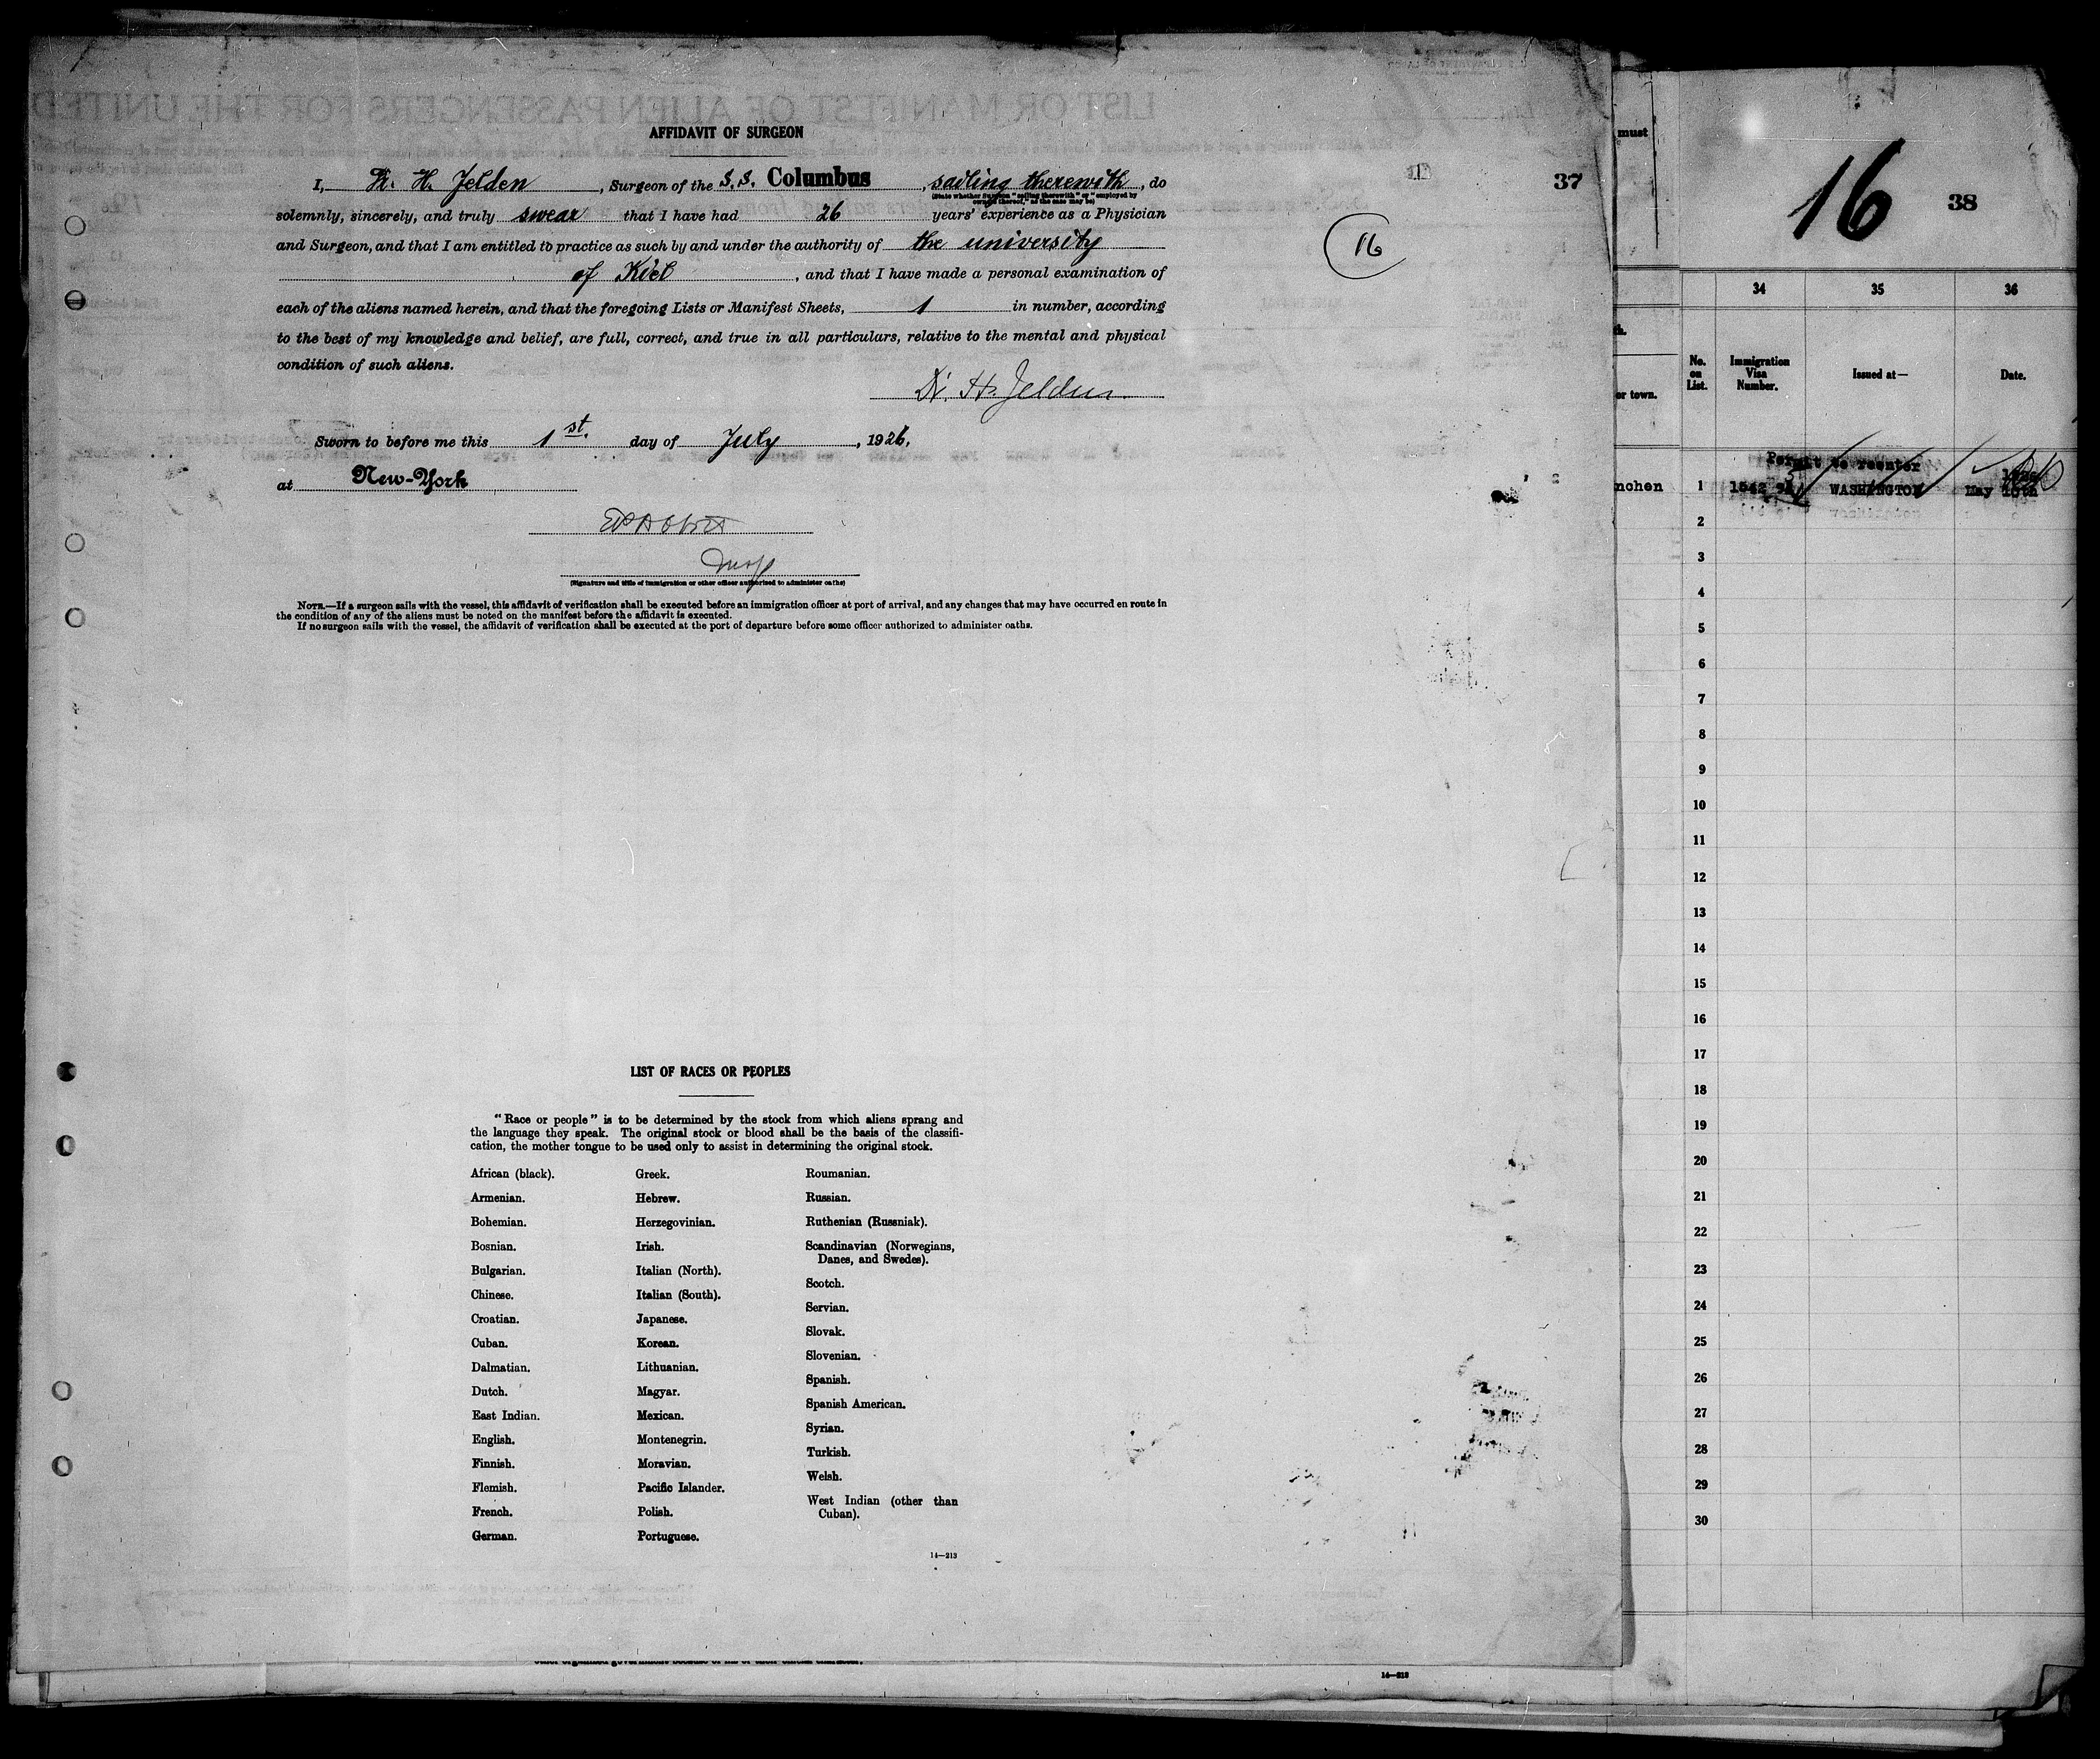 AFFIDAVIT OF SURGEON
I, Dr. H. Jelden, Surgeon of the S.S. Columbus, sailing therewith, do
(State whether Surgeon "sailing therewith" or "employed by owners thereof," as the case may be)
solemnly, sincerely, and truly swear that I have had 26 years' experience as a Physician
and Surgeon, and that I am entitled to practice as such by and under the authority of the university
of Kiel, and that I have made a personal examination of
each of the aliens named herein, and that the foregoing Lists or Manifest Sheets, 1 in number, according
to the best of my knowledge and belief, are full, correct, and true in all particulars, relative to the mental and physical
condition of such aliens.
Dr. H. Jelden
Sworn to before me this 1st. day of July, 1926,
at New-York
Insp
(Signature and title of immigration or other officer authorized to administer oaths)
NOTE.—If a surgeon sails with the vessel, this affidavit of verification shall be executed before an immigration officer at port of arrival, and any changes that may have occurred en route in
the condition of any of the aliens must be noted on the manifest before the affidavit is executed.
If no surgeon sails with the vessel, the affidavit of verification shall be executed at the port of departure before some officer authorized to administer oaths.
37
16
LIST OF RACES OR PEOPLES
"Race or people" is to be determined by the stock from which aliens sprang and
the language they speak. The original stock or blood shall be the basis of the classifi-
cation, the mother tongue to be used only to assist in determining the original stock.
African (black).
Armenian.
Bohemian.
Bosnian.
Bulgarian.
Chinese.
Croatian.
Cuban.
Dalmatian.
Dutch.
East Indian.
English.
Finnish.
Flemish.
French.
German.
Greek.
Hebrew.
Herzegovinian.
Irish.
Italian (North).
Italian (South).
Japanese.
Korean.
Lithuanian.
Magyar.
Mexican.
Montenegrin.
Moravian.
Pacific Islander.
Polish.
Portuguese.
Roumanian.
Russian.
Ruthenian (Russniak).
Scandinavian (Norwegians,
Danes, and Swedes).
Scotch.
Servian.
Slovak.
Slovenian.
Spanish.
Spanish American.
Syrian.
Turkish.
Welsh.
West Indian (other than
Cuban).
14—213
14—213
must
or town.
nchen
16
38
34 35 36
No. on List.
Immigration Visa Number.
Issued at—
Date.
Permit to reenter
1 WASHINGTON May 10th
2
3
4
5
6
7
8
9
10
11
12
13
14
15
16
17
18
19
20
21
22
23
24
25
26
27
28
29
30